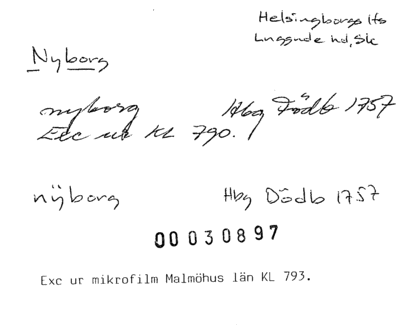 Helsingborgs lfs
Luggude hd, Sk
Nyborg
nyborg Hbg Dödb 1757
Exc ur KL 790.
nÿborg Hbg Dödb 1757
00 030897
Exc ur mikrofilm Malmöhus län KL 793.